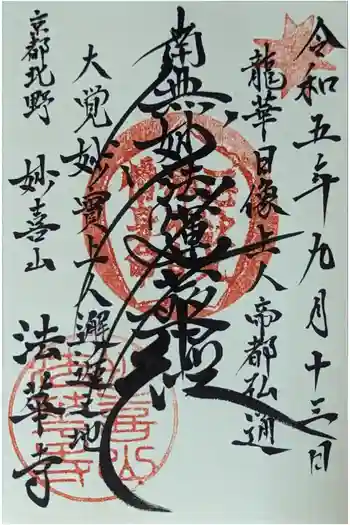 令和五年九月十三日
龍華日像上人 帝都弘通
南無妙法蓮華経
大覚妙實上人邂逅之地
京都北野 妙喜山
法華寺